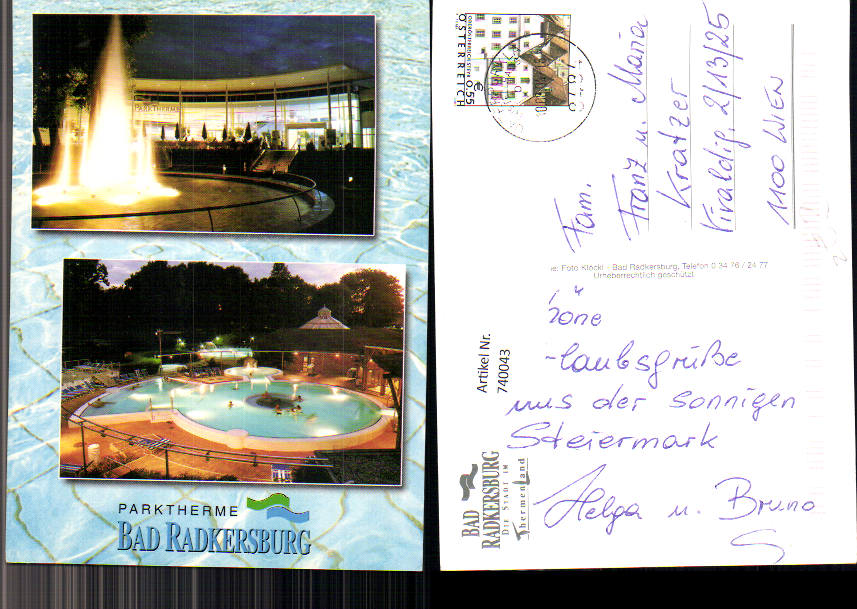 PARKTHERME
PARKTHERME
BAD RADKERSBURG
ÖSTERREICH
€ 0,55
Fam.
Franz u. Maria
Kratzer
Vivaldig. 2/13/25
1100 WIEN
e: Foto Klöckl - Bad Radkersburg, Telefon 0 34 76 / 24 77
Urheberrechtlich geschützt
Artikel Nr.
740043
laubsgrüße
aus der sonnigen
Steiermark
Helga u. Bruno
BAD
RADKERSBURG
DIE STADT IM
ThermenLand